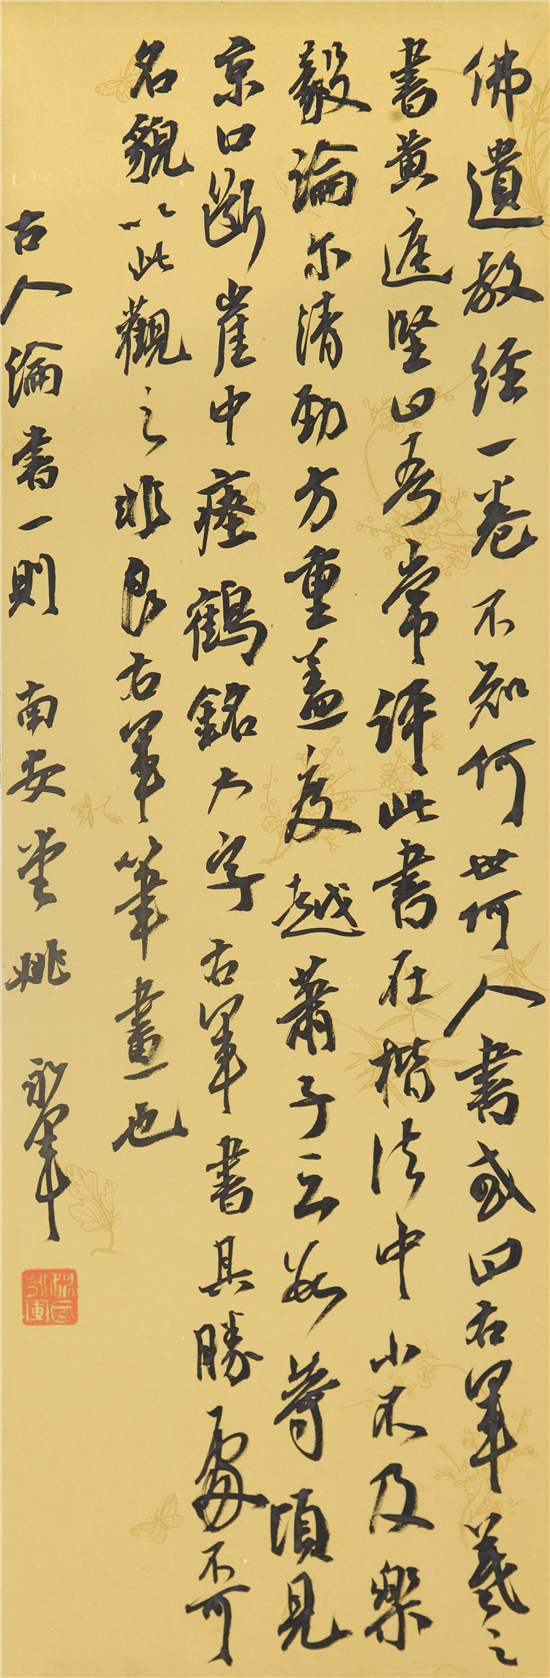 佛遺教經一卷不知何世何人書或曰右軍羲之
書黄庭堅曰吾常評此書在楷法中小不及樂
毅論尔清勁方重蓋度越蕭子云數等頃見
京口斷崖中瘞鶴銘大字右軍書其勝處不可
名貌以此觀之非良右軍筆畫也
古人論書一則 南安堂姚永軍
姚氏永軍